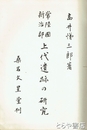 高井悌三郎著
常陸國
新治郡
上代遺跡の研究
桑名文星堂刊